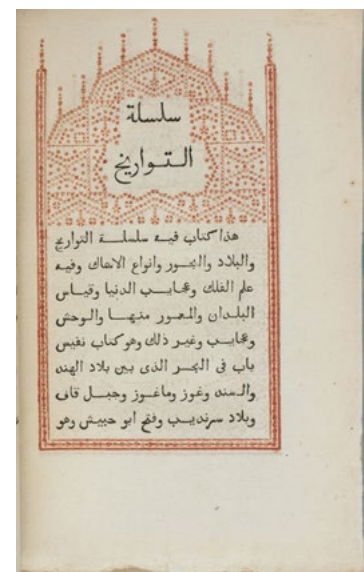 سلسلة
التواريخ
هذا كتاب فيه سلسلة التواريخ
والبلاد والبحور وانواع الاسماك وفيه
علم الفلك وعجايب الدنيا وقياس
البلدان والمعمور منها والوحش
وعجايب وغير ذلك وهو كتاب نفيس
باب فى البحر الذى بين بلاد الهند
والسند وغوز وماغوز وجبل قاف
وبلاد سرنديب وفتح ابو حبيش وهو